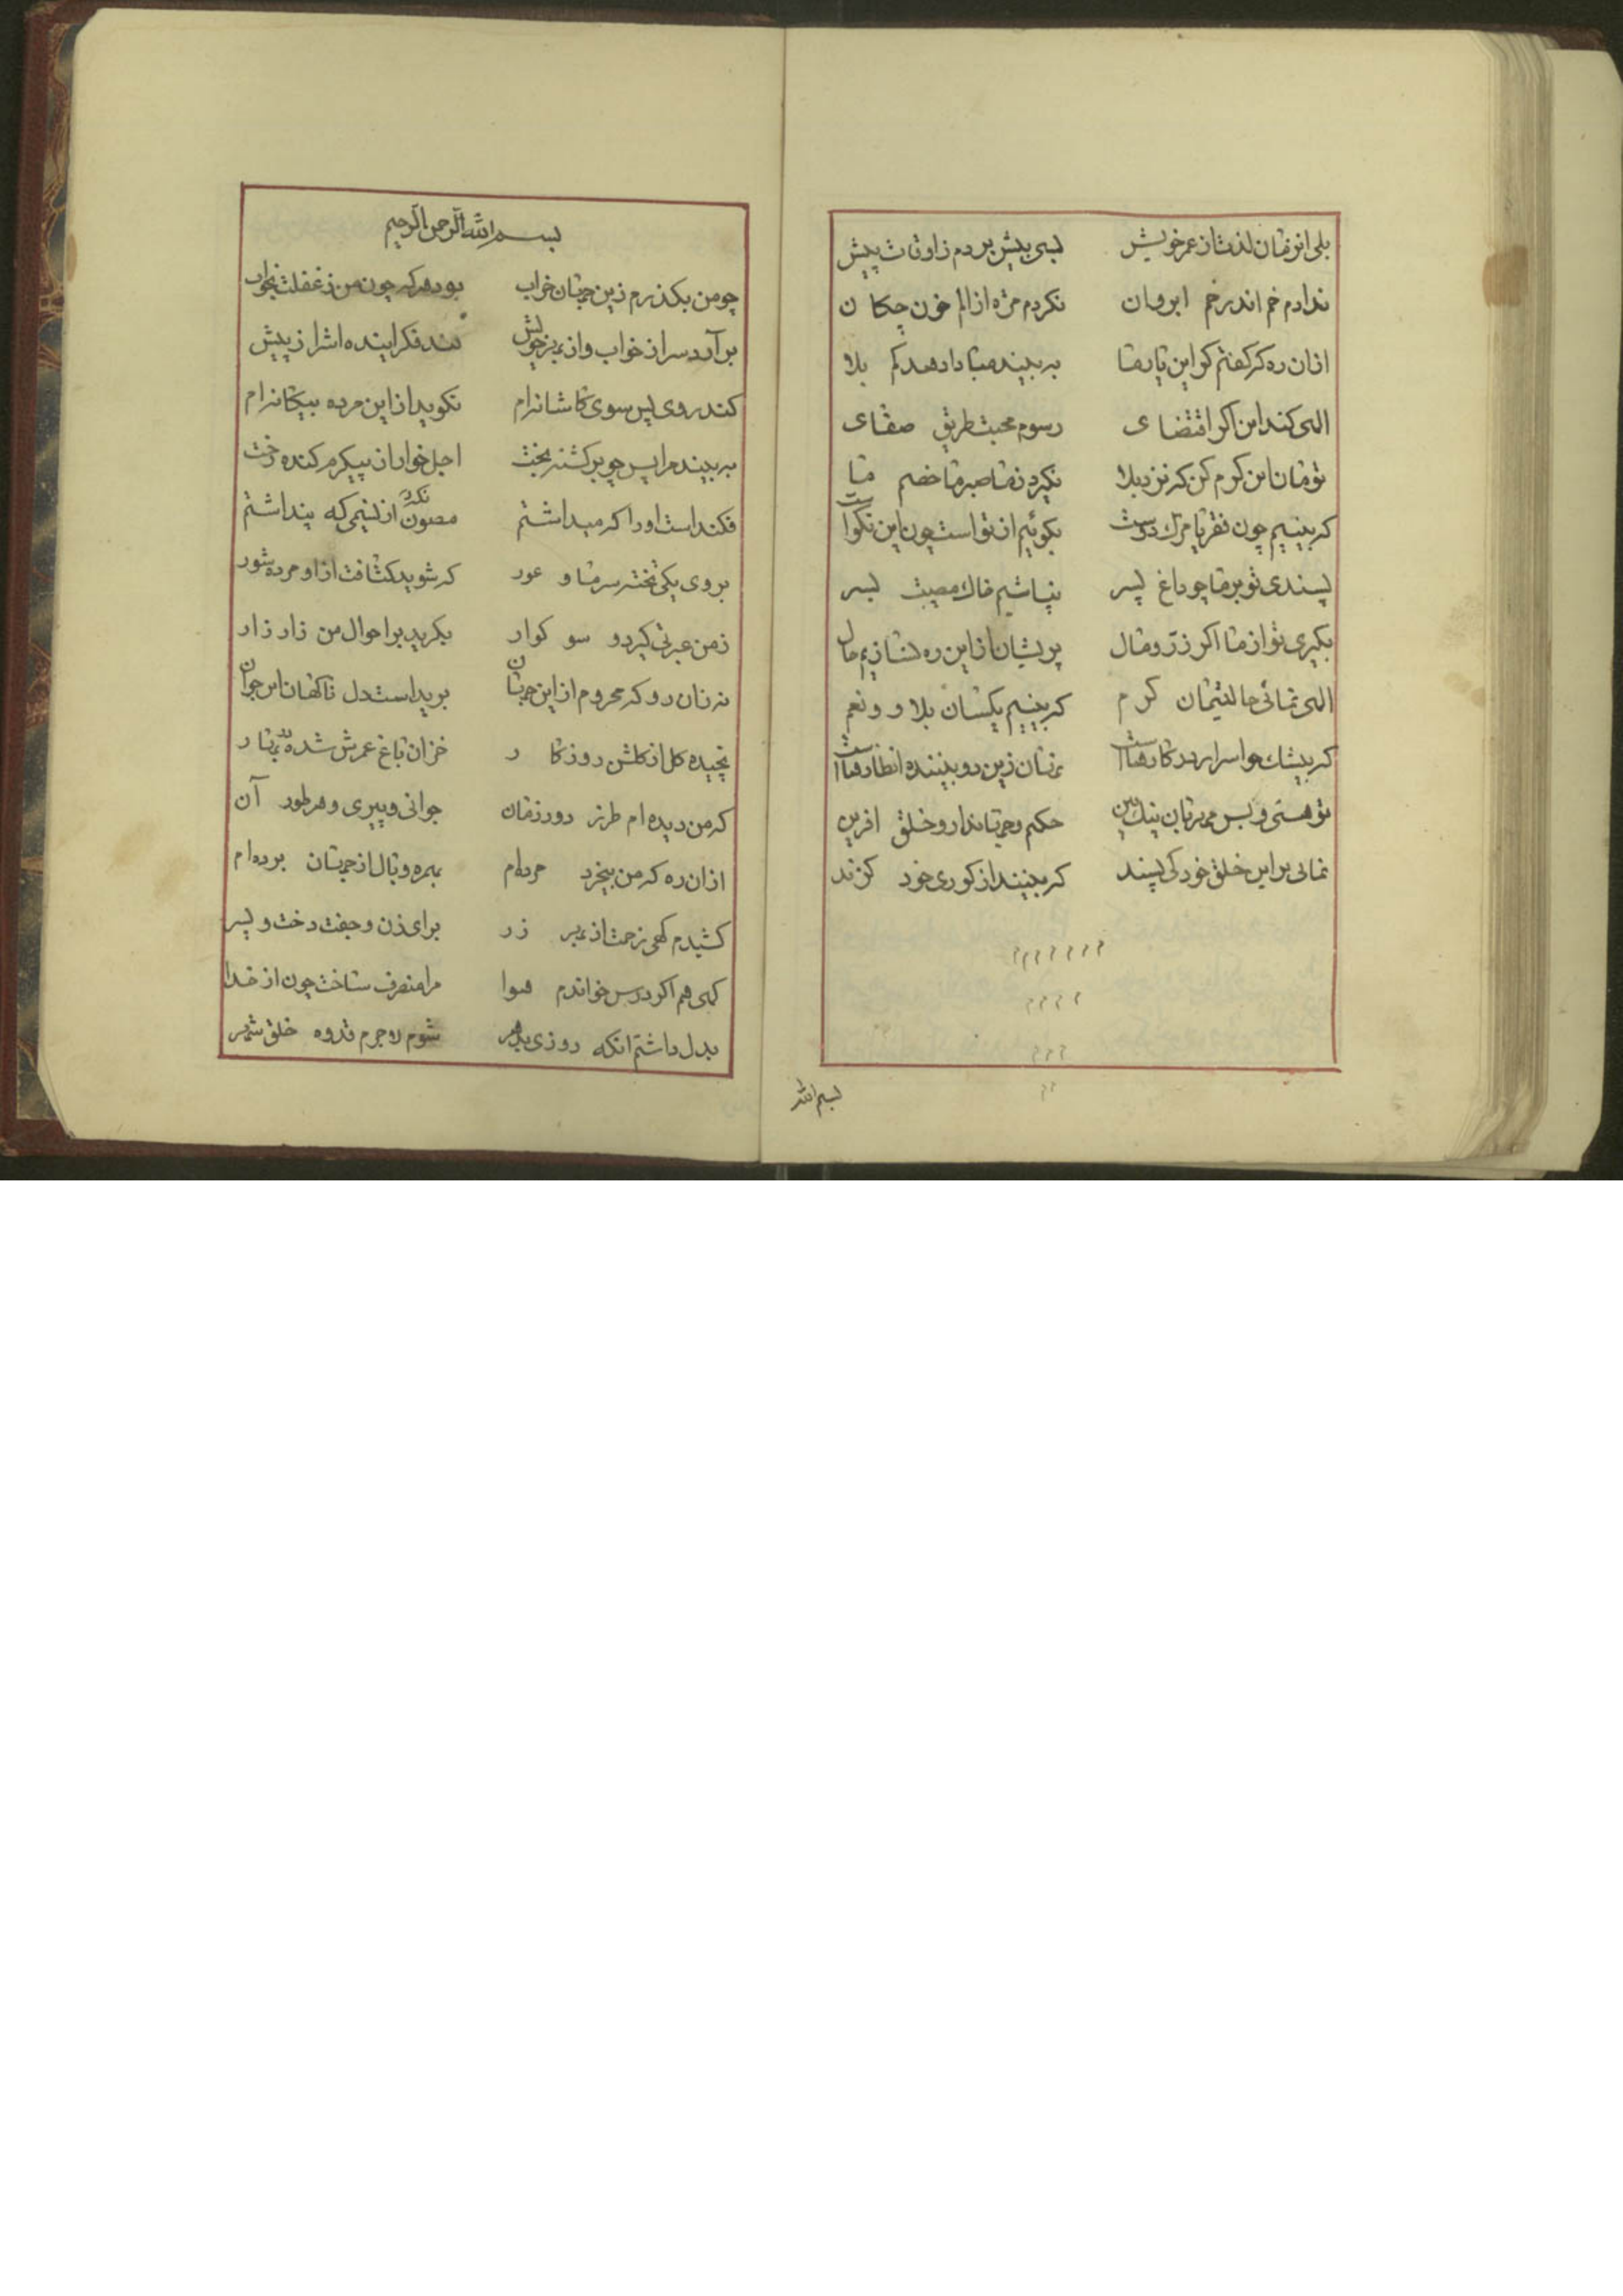 بلی انزمان لذت از عمر خویش بسی بیش بردم ز اوقات پیش
ندادم خم اندر خم ابروان نکردم مژه از الم خون چکان
ازان ره که کفتم کر این یار ما به بیند مبادا دهد کم بلا
الهی کند این اکر اقتضای رسوم محبت طریق صفای
تو مان این کرم کن که نزد بلا نکیرد ز ما صبر ما خصم ما
که بینیم چون فقر یا مرک دوست بکوئیم از تو است چون این نکواست
پسندی تو بر ما چو داغ پسر نپاشیم خاک مصیبت بسر
بکیری تو از ما اکر زر و مال پریشان از این ره نسازیم حال
الهی نمائی حالتیمان کرم که بینیم یکسان بلا و و نعم
که بیشک چو اسرار در کارهاست نه نان زین دو بیننده انظار هاست
تو هستی و بس مهربان نیک بین حکم و جهاندار و خلق افرین
نمائی بر این خلق خود کی پسند که بینند از کوری خود کزند
بسم الله
بسم الله الرحمن الرحیم
چو من بکذرم زین جهان خراب بود هر که چون من ز غفلت بخواب
بر آرد سر از خواب و از بهر خویش کند فکر اینده اش را ز پیش
کند روی پس سوی کاشانه ام نکوید از این مرده بیکانه ام
به بیند مرا پس چو برکشته بخت اجل خوار از پیکرم کنده رخت
فکند است او را که میداشتم مصون نکرد از نسیمی که پنداشتم
بروی یکی تخته سر ما و عور که شوید کثافت از او مرده شور
ز من عبرتی کیرد و سوکوار بکرید بر احوال من زار زار
نه زنان رو که محروم از این جهان برید است دل ناکهان این جوان
نچیده کل از کلشن روزکار خزان باغ عمرش شده در بهار
که من دیده ام طرز دور زمان جوانی و پیری و هر طور آن
ازان ره که من بیخرد مرده ام بهره وبال از جهان برده ام
کشیدم کهی زحمت از بهر زر برای زن و جفت دخت و پسر
کهی هم اکر درس خواندم هوا مرا منصرف ساخت چون از خدا
بدل داشتم انکه روزی بدهر شوم لاجرم قدوه خلق شهر